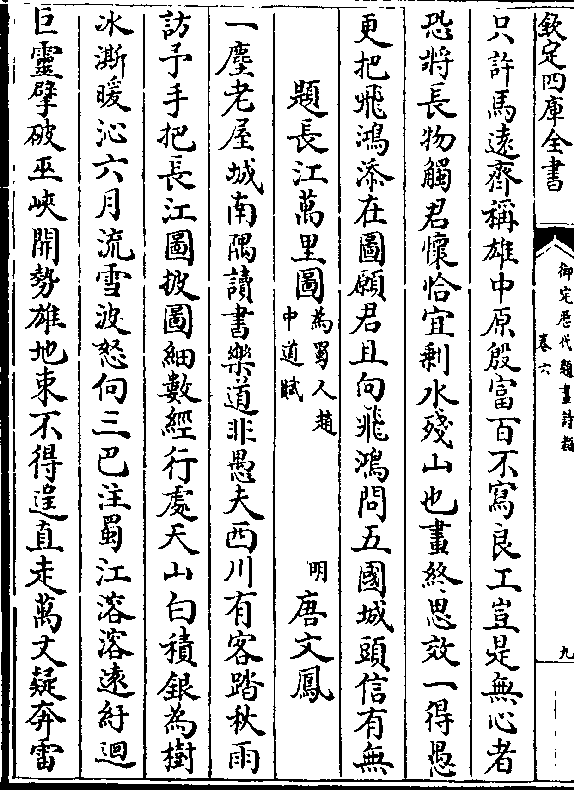 欽定四庫全書
御定歷代題畫詩類
卷六
九
只許馬遠齊稱雄中原殷富百不寫良工豈是無心者
恐將長物觸君懷恰宜剰水殘山也畫終思效一得愚
更把飛鴻添在圖願君且向飛鴻問五國城頭信有無
題長江萬里圖為蜀人趙中道賦 明 唐文鳳
一塵老屋城南隅讀書樂道非愚夫西川有客踏秋雨
訪予手把長江圖披圖細數經行處天山白積銀為樹
冰澌暖沁六月流雪波怒向三巴注蜀江溶溶遠紆迴
巨靈擘破巫峽開勢雄地束不得逞直走萬丈疑奔雷